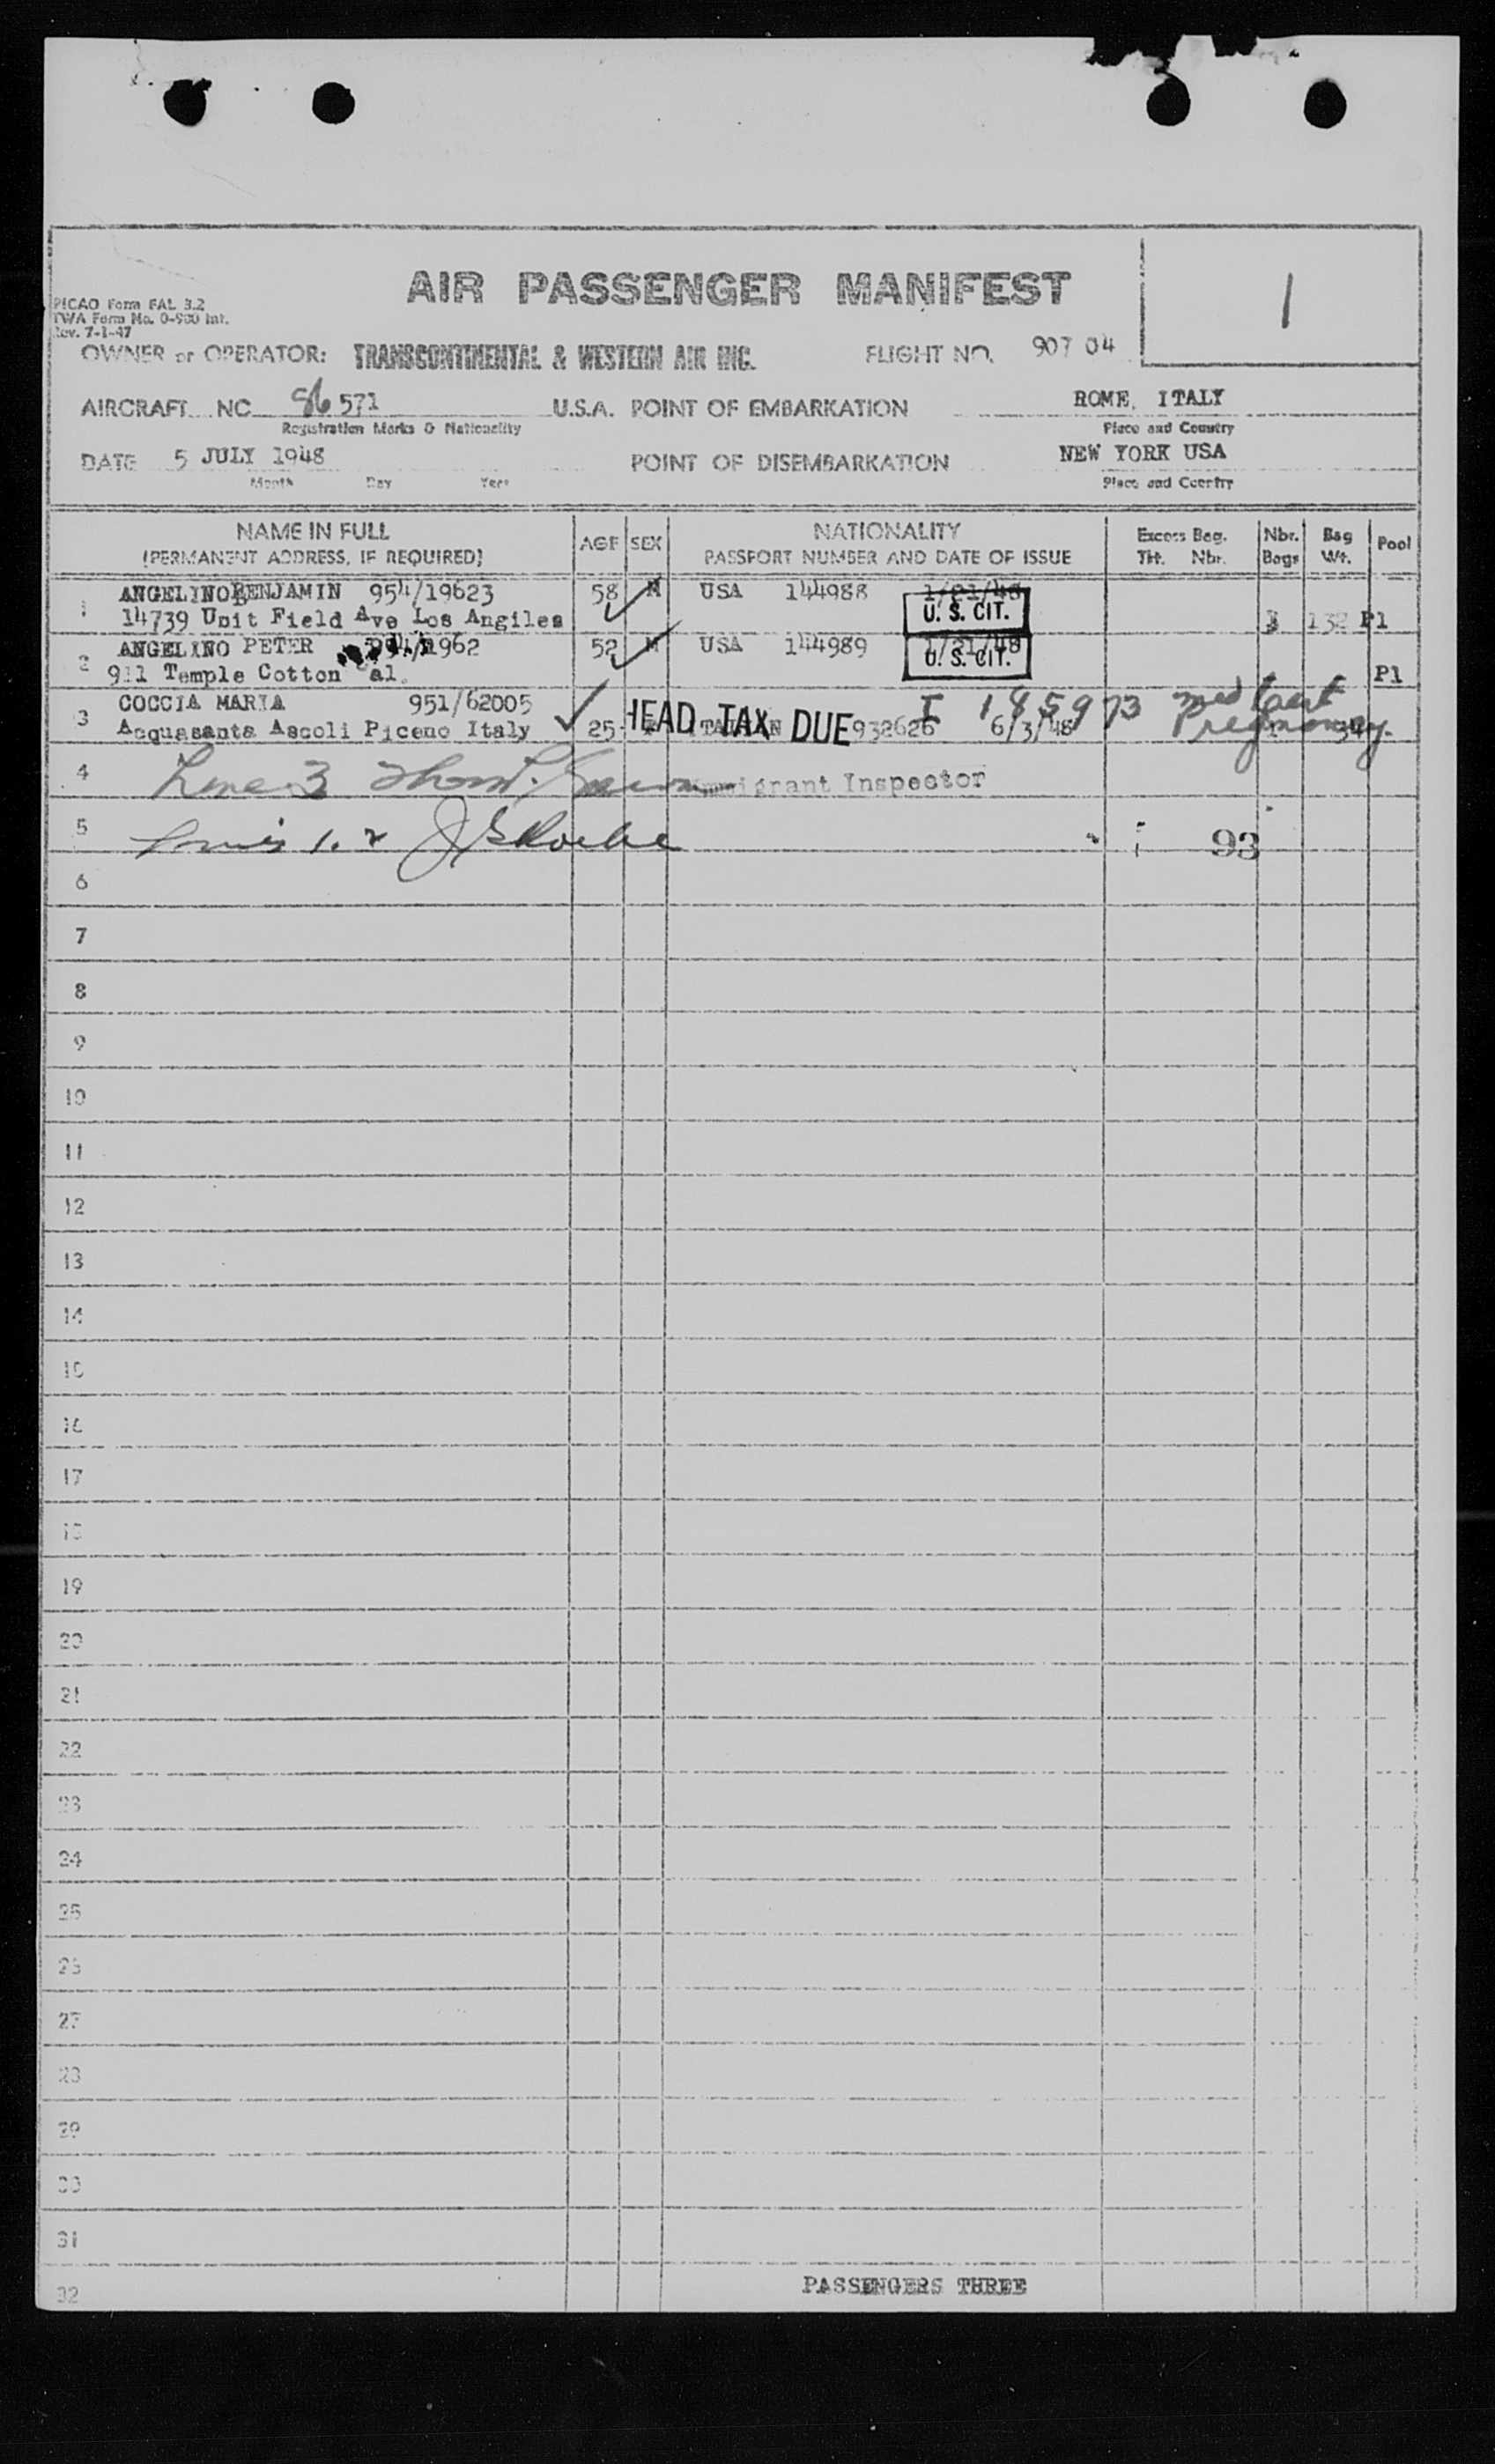 1
AIR PASSENGER MANIFEST
PICAO Form FAL 3.2
TWA Form No. 0-900 Int.
Rev. 7-1-47
OWNER or OPERATOR: TRANSCONTINENTAL & WESTERN AIR INC. FLIGHT NO. 907 04
AIRCRAFT NC 86 571 U.S.A. POINT OF EMBARKATION ROME, ITALY
Registration Marks & Nationality Place and Country
DATE 5 JULY 1948 POINT OF DISEMBARKATION NEW YORK USA
Month Day Year Place and Country
NAME IN FULL AGE SEX NATIONALITY Excess Bag. Nbr. Bag Pool
(PERMANENT ADDRESS, IF REQUIRED) PASSPORT NUMBER AND DATE OF ISSUE Tkt. Nbr. Bags Wt.
1 ANGELINO BENJAMIN 954/19623 58 M USA 144988 1/21/48
14739 Unit Field Ave Los Angiles U. S. CIT. 3 132 P1
2 ANGELINO PETER 1962 52 M USA 144989 1/21/48
911 Temple Cotton Cal. U. S. CIT. P1
3 COCCIA MARIA 951/62005 I 185973 med cert
Acquasanta Ascoli Piceno Italy 25 HEAD TAX DUE 932626 6/3/48 Pregnancy.
4 Line 3 Immigrant Inspector
5 Lines 1. 2 93
6
7
8
9
10
11
12
13
14
15
16
17
18
19
20
21
22
23
24
25
26
27
28
29
30
31
32 PASSENGERS THREE